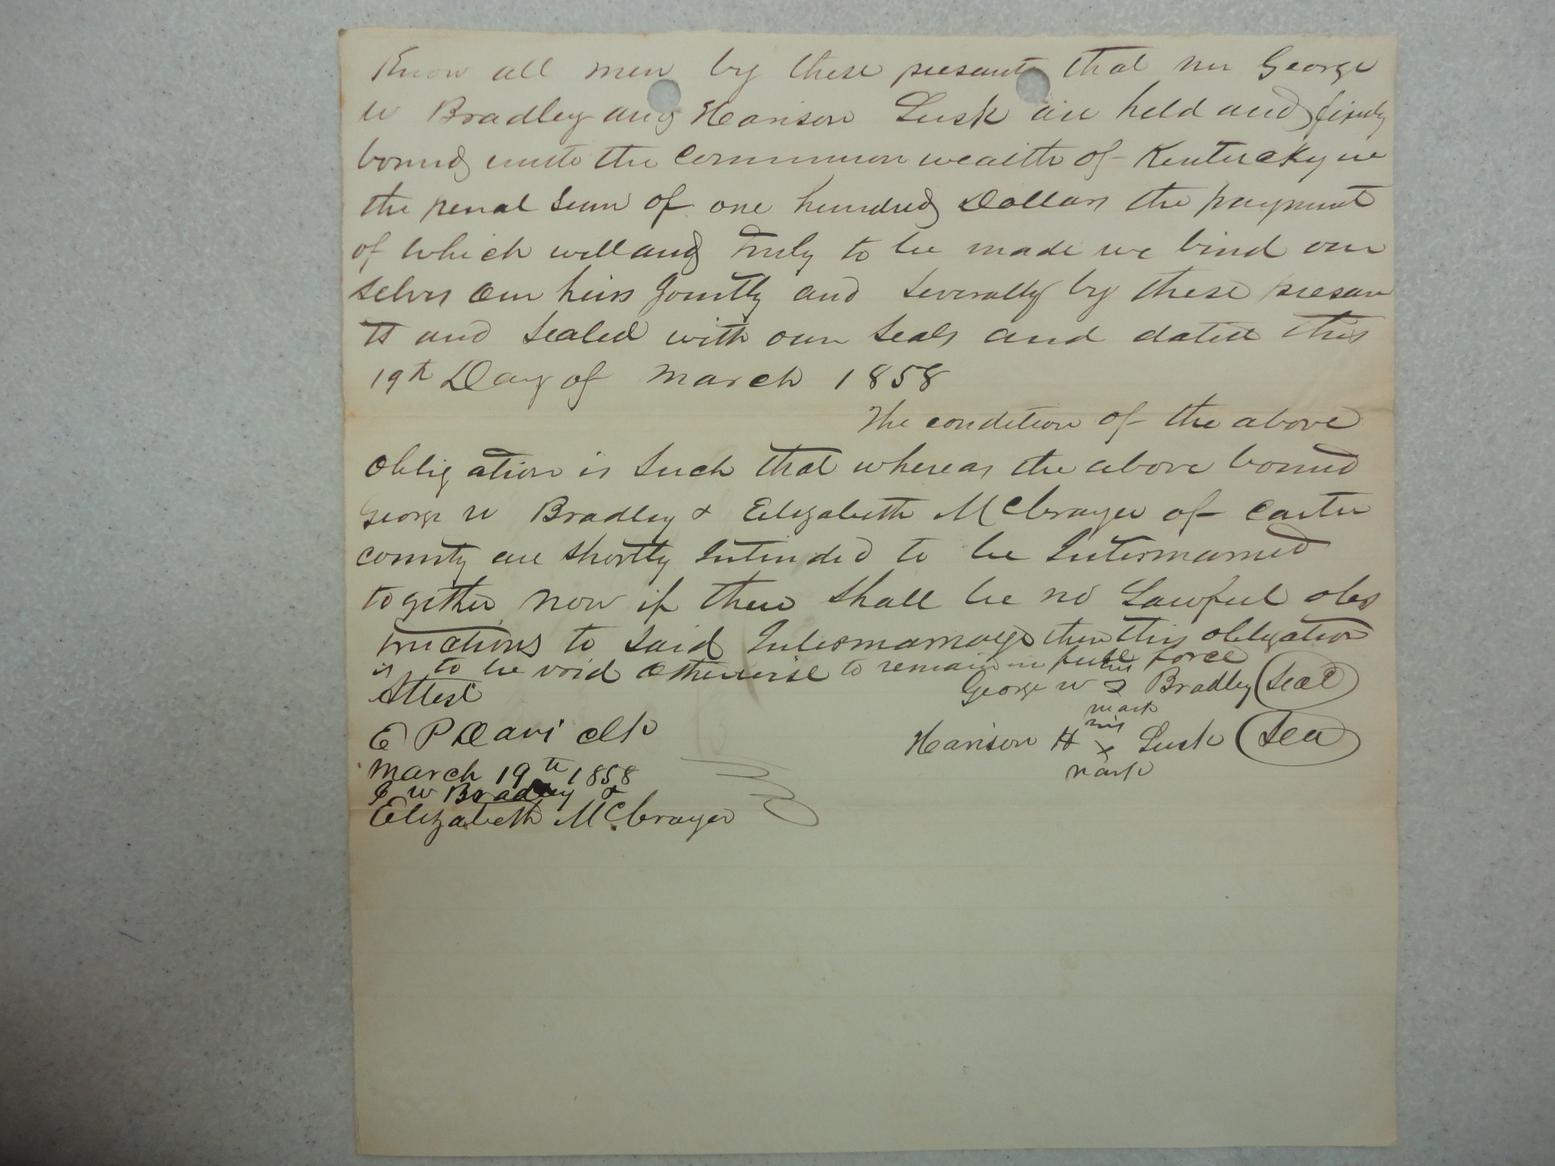 Know all men by these presants that we George
W Bradley and Harison Lusk are held and firmly
bound unto the Common wealth of Kentucky in
the penal Sum of one hundred Dollars the payment
of which well and truly to be made we bind our
selves Our heirs Jointly and Severally by these presan
ts and Sealed with our Seals and dated this
19th Day of March 1858
The condition of the above
Obligation is Such that whereas the above bound
George W Bradley & Elizabeth McBrayer of Carter
county are Shortly Intended to be Intermarried
together Now if there Shall be no Lawful obs
tructions to Said Intermarriage then this obligation
is to be void Otherwise to remain in full force
Attest
his
George W x Bradley (Seal)
mark
his
Harison H x Lusk (Seal)
mark
E P Davi clk
March 19th 1858
G W Bradley &
Elizabeth McBrayer